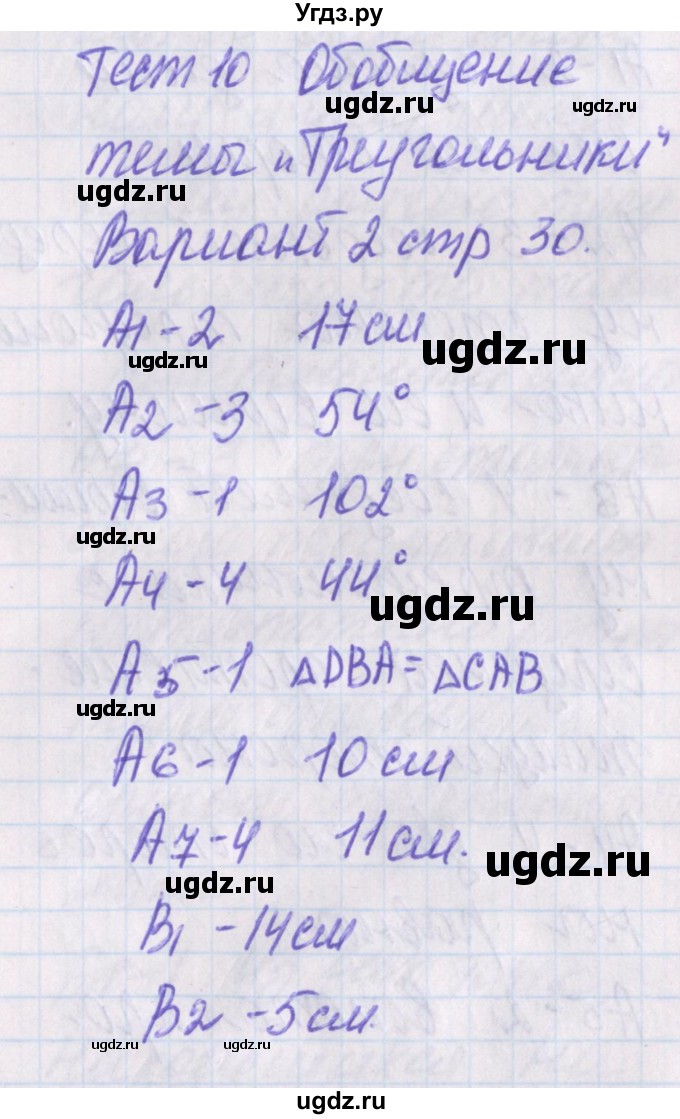 Угдз.ру
Тест 10 Обобщение
ugdz.ru ugdz.ru
темы "Треугольники"
ugdz.ru
Вариант 2 стр 30.
А1 - 2 17 см
ugdz.ru ugdz.ru
А2 - 3 54°
А3 - 1 102°
ugdz.ru
А4 - 4 44°
ugdz.ru
А5 - 1 △DBA = △CAB
ugdz.ru
А6 - 1 10 см
А7 - 4 11 см.
ugdz.ru ugdz.ru
В1 - 14 см
В2 - 5 см.
ugdz.ru ugdz.ru
ugdz.ru